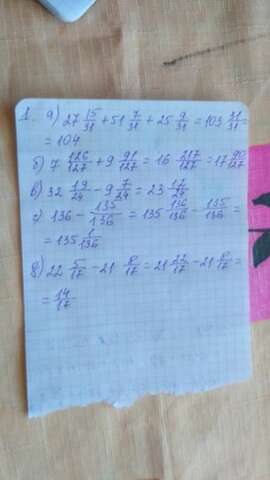 1. а) 27 15/31 + 51 7/31 + 25 9/31 = 103 31/31 =
= 104
б) 7 126/127 + 9 91/127 = 16 217/127 = 17 90/127
в) 32 19/24 - 9 7/24 = 23 12/24
г) 136 - 135/136 = 135 136/136 - 135/136 =
= 135 1/136
д) 22 5/17 - 21 8/17 = 21 22/17 - 21 8/17 =
= 14/17